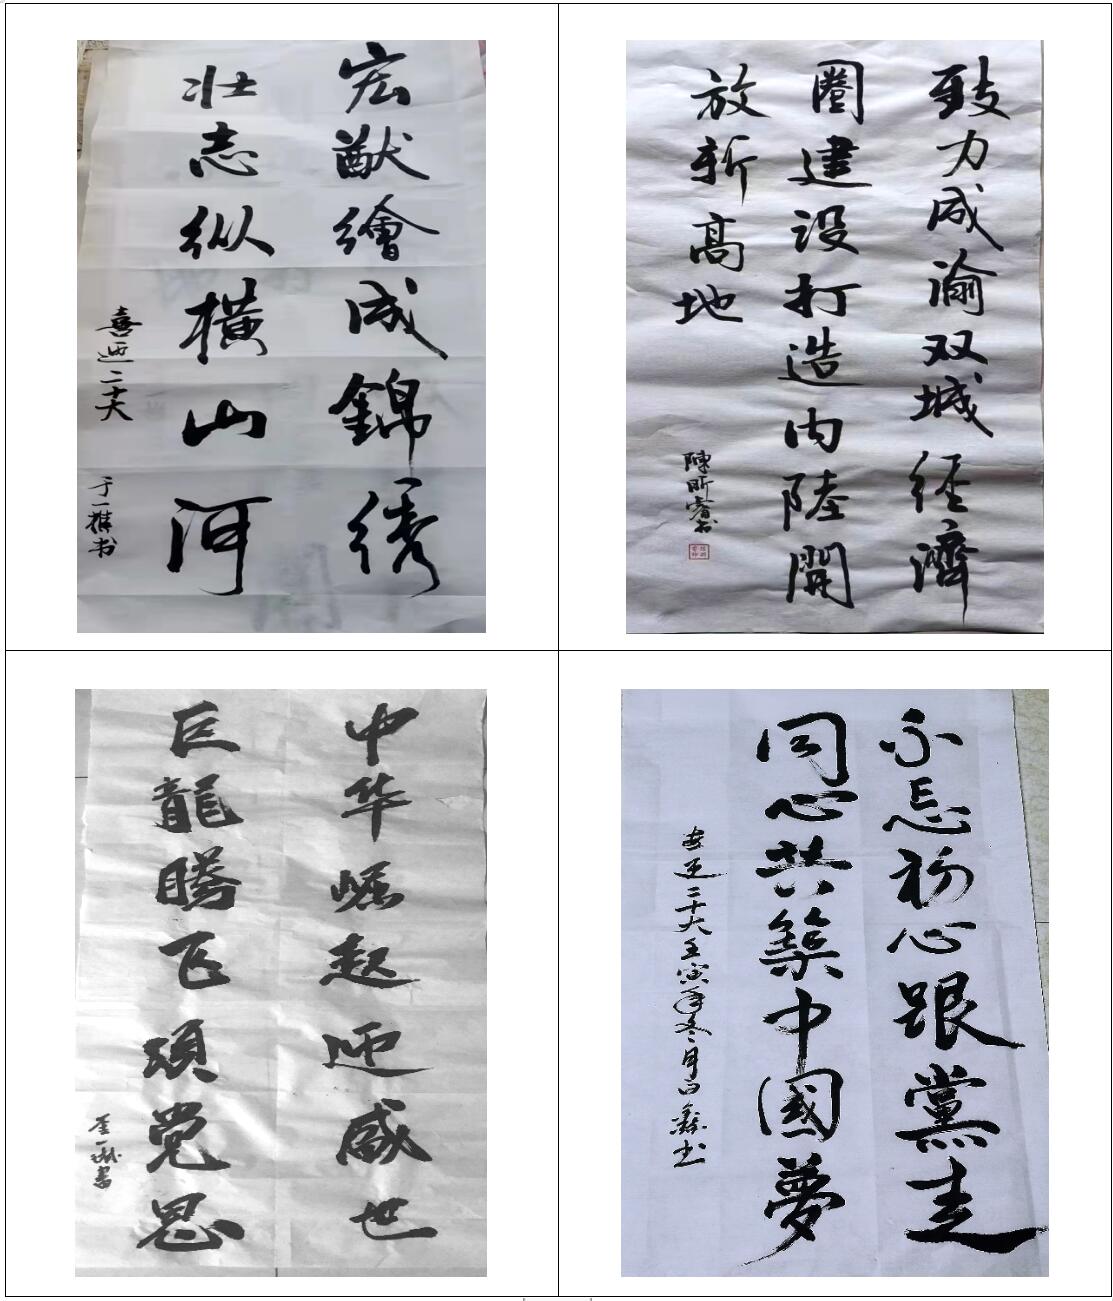 宏猷繪成錦绣
壮志纵横山河
喜迎二十大
于一樵书
致力成渝双城经濟
圈建设打造内陸開
放新高地
陳昕睿书
中华崛起迎盛世
巨龍腾飞颂党恩
不忘初心跟黨走
同心共築中國夢
喜迎二十大壬寅年冬月白鑫书